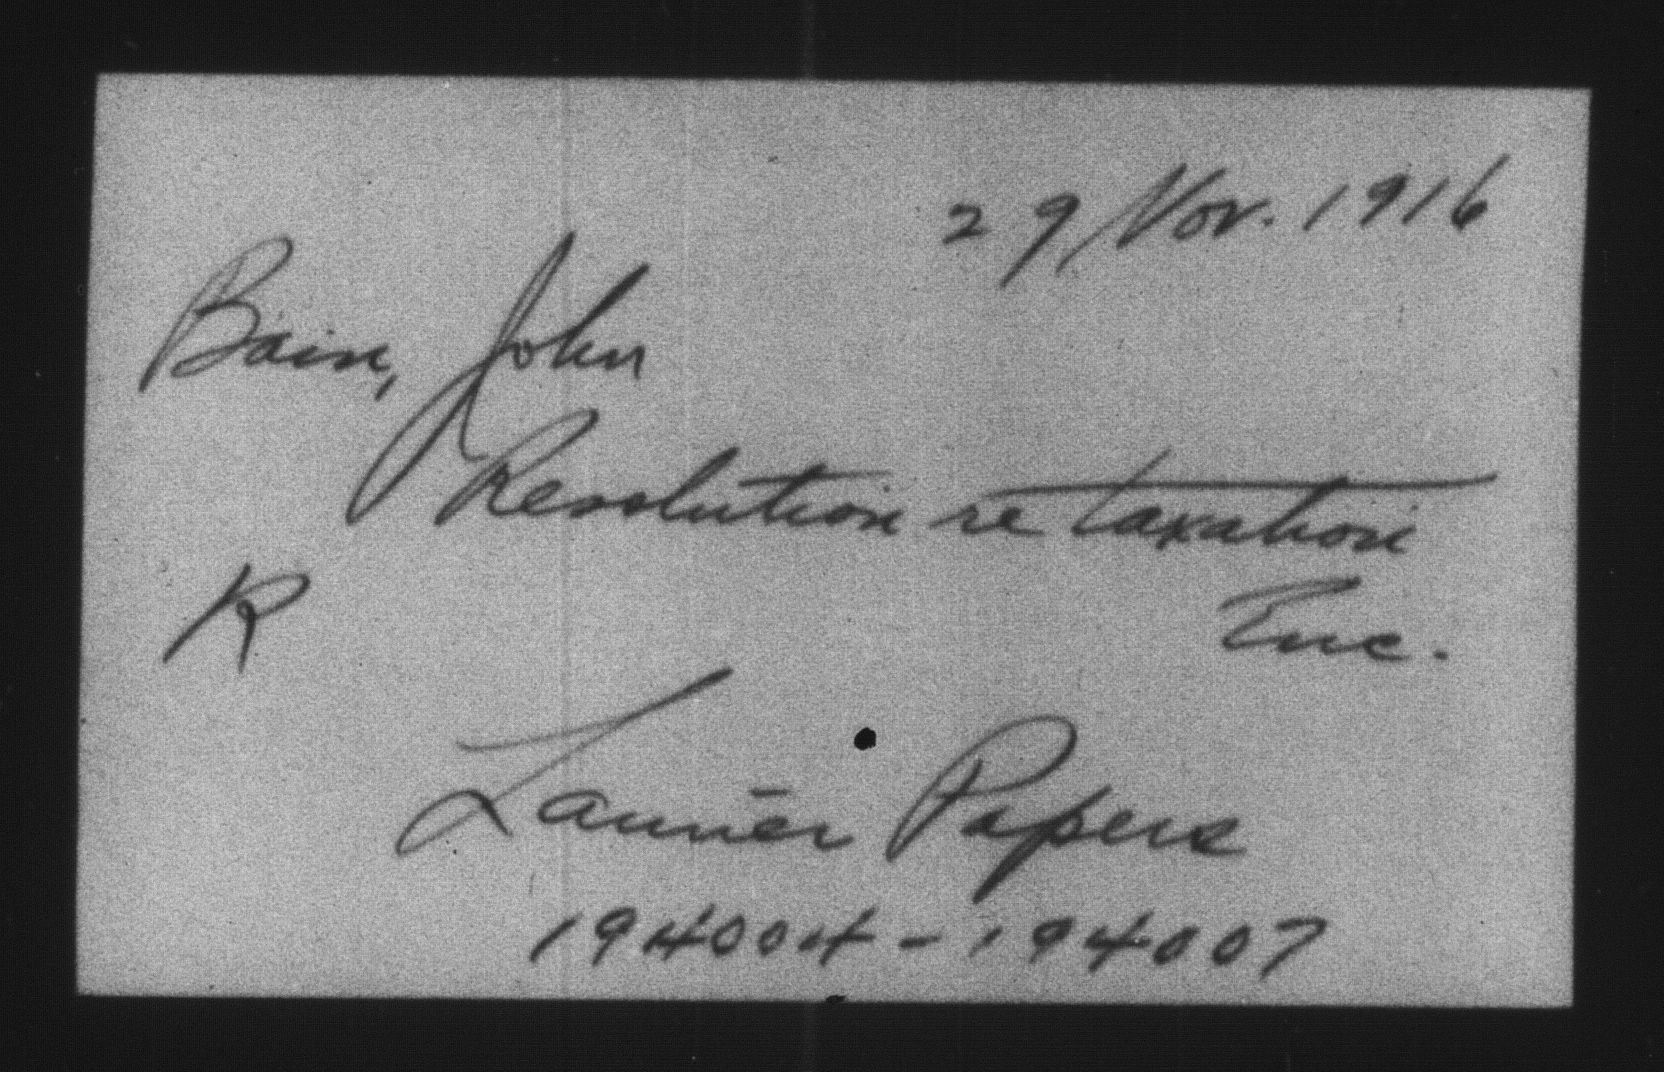 29 Nov. 1916
Bain, John
Resolution re taxation
R Enc.
Laurier Papers
194004-194007